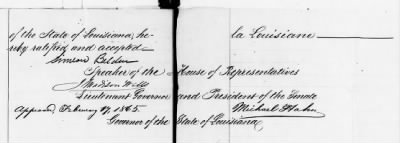 of the State of Louisiana, he-
reby ratified and accepted.
la Louisiane
Simeon Belden
Speaker of the House of Representatives
J Madison Wells
Lieutenant Governor and President of the Senate
Approved, February 17, 1865
Michael Hahn
Governor of the State of Louisiana